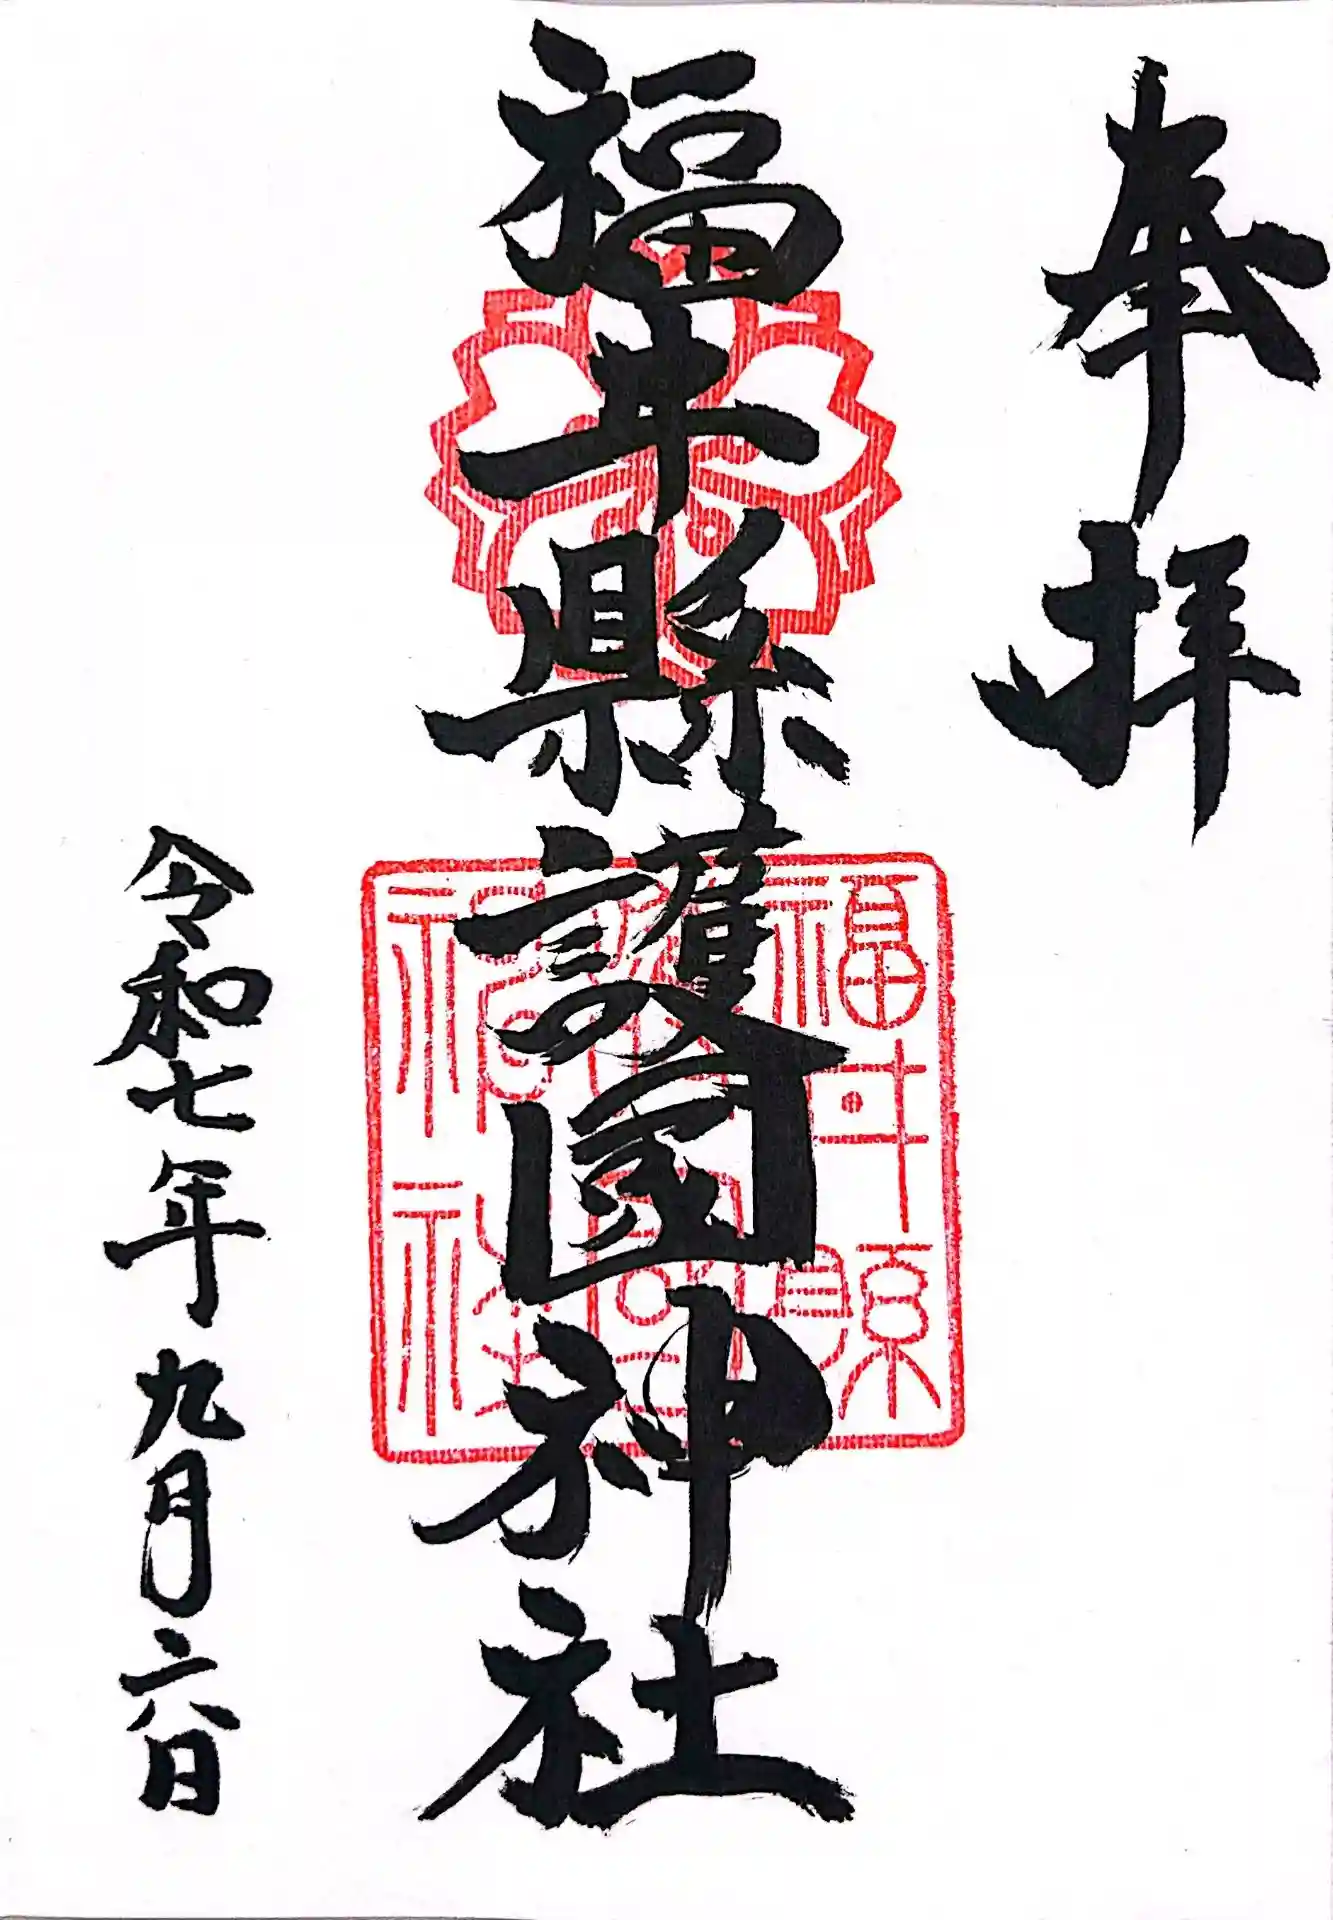 奉拝
福井縣護國神社
福井縣
護國
神社
令和七年九月六日